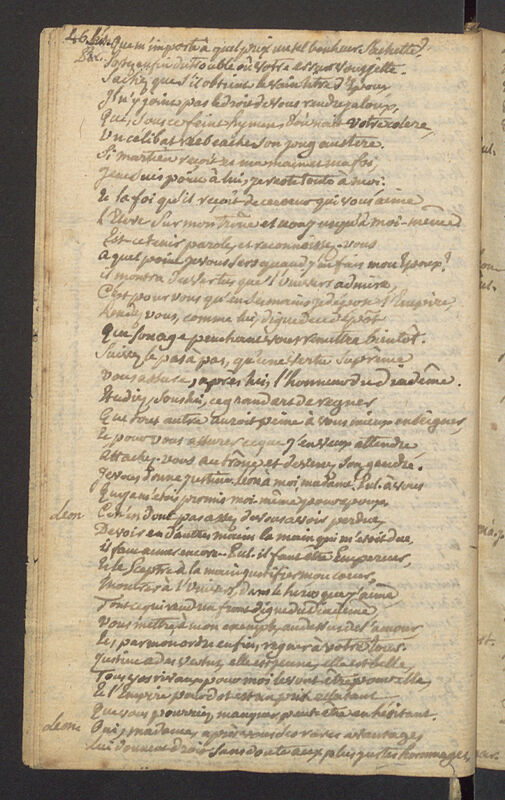 46 Léon. Que m'importe à quel prix un tel bonheur s'achette?
Sortez enfin du trouble où votre erreur vous jette.
Sachez que s'il obtient le vain titre d'Epoux,
Il n'y joint pas le droit de vous rendre jaloux,
Que, sous ce feint hymen, dont naît votre colere,
Un celibat cache son joug austere.
Si martien reçoit et ma main et ma foi,
je ne suis point à lui, je reste toute à moi.
Et la foi qu'il reçoit de ce cœur qui vous aime
L'Eleve sur mon trône et non jusqu'à moi-même
Est-ce tenir parole, et reconnoissez-vous
A quel point je vous sers quand j'en fais mon Epoux?
il montra des vertus que l'univers admira
C'est pour vous qu'en ses mains je dépose l'Empire,
Rendez vous, comme lui, digne de ce dépôt
Que son age penchant vous remettra bientôt.
Suivez le pas à pas, qu'une vertu suprême
Vous assure, après lui, l'honneur du diadême.
Etudiez, sous lui, ce grand art de regner,
Que tout autre auroit peine à vous mieux enseigner,
Et, pour vous assurer ce que j'en veux attendre,
Attachez-vous au trône, et devenez son gendre.
Je vous donne justine. Léon à moi madame! Pul. à vous
Que j'avois promis moi-même pour époux.
Leon Ce n'est donc pas assez de vous avoir perdue,
De voir en d'autres mains la main qui m'étoit due,
il faut aimer encore— Pul. il faut être Empereur,
Et le Sceptre à la main justifier mon cœur,
Montrer à l'Univers, dans le heros que j'aime,
Tout ce qui rend un front digne du diademe
Vous mettre, à mon exemple, au dessus de l'amour
Et, par mon ordre enfin, regner à votre tour.
Justine a des vertus, elle est jeune, elle est belle,
Tous vos rivaux pour moi le vont être pour elle,
Et l'Empire pour dot est un prix éclatant
Que vous pourriez manquer peut être en hésitant.
Leon Oui, madame, après vous de rares avantages
lui donnent droit sans doute aux plus justes hommages,